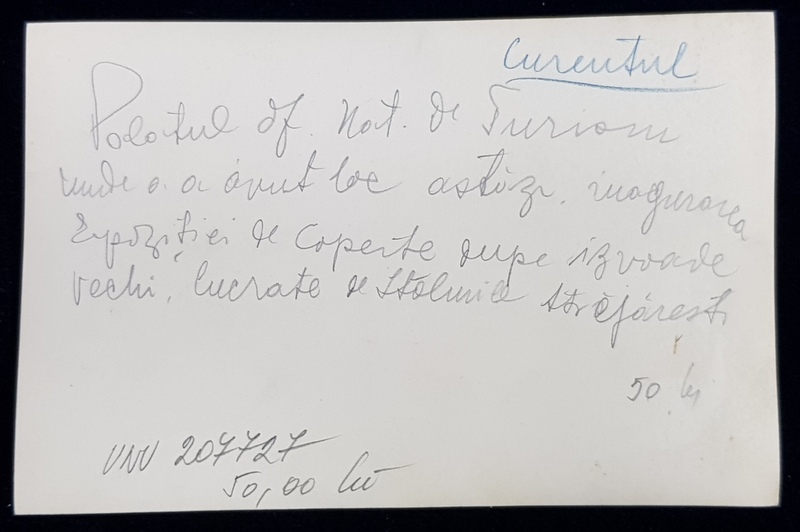 Curentul
Palatul Of. Nat. de Turism
unde s. a avut loc astăzi, inagurarea
Expoziției de Coperte dupe izvoade
vechi, lucrate de Stolnicii străjărești
50 lei
UNU 207727
50,00 lei